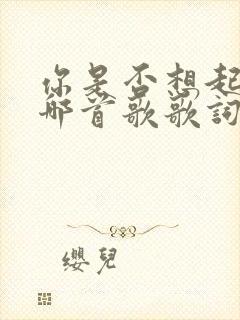 你是否想起
那首歌歌詞
纓兒